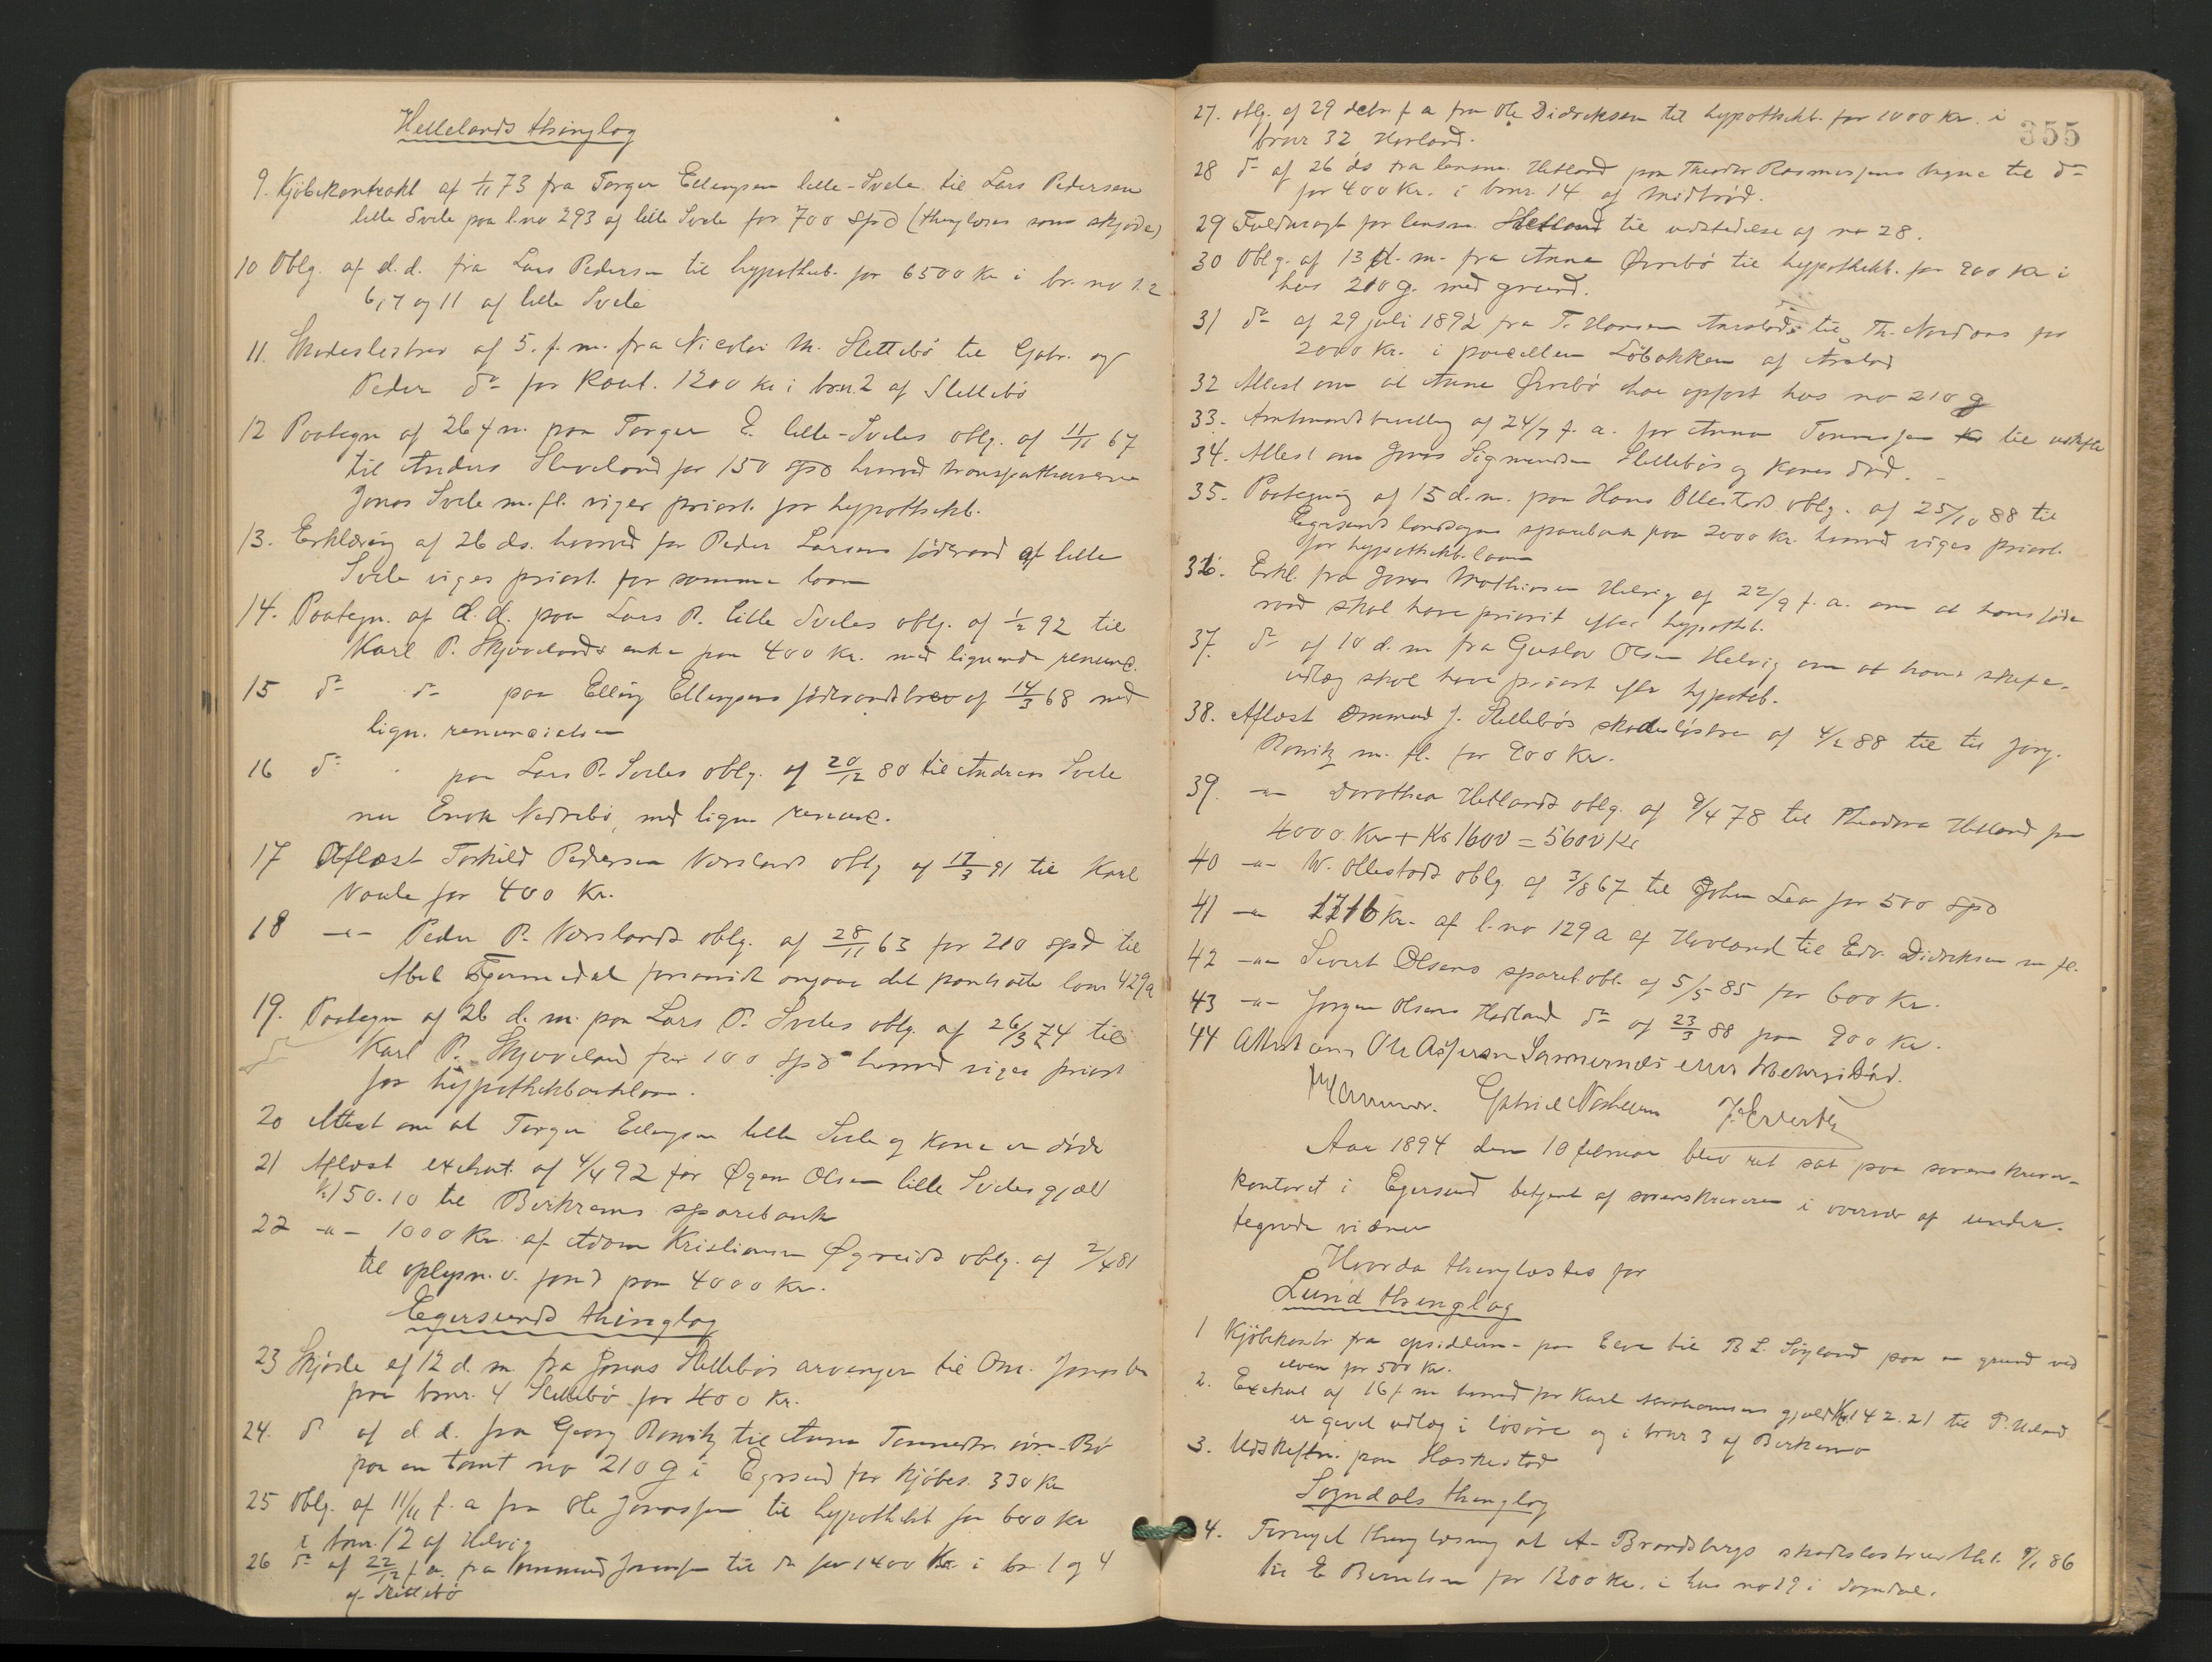 Hellelands thinglag
9. Kjöbekontrakt af 1/11 73 fra Torger Ellingsen lille-Svele til Lars Pedersen
lille Svele paa l.no 293 af lille Svele for 700 Spd (thinglæses som skjøde)
10 Oblg. af d.d. fra Lars Pedersen til hypothekb. for 6500 Kr i br. no 1.2
6, 7 og 11 af lille Svele
11. Skadeslösbrev af 5. f.m. fra Nicolai M. Slettebö til Gabr. og
Peder do for kaut. 1200 kr i brn. 2 af Slettebö
12 Paategn af 26 f m. paa Torger E. lille-Sveles oblg. af 11/11 67
til Anders Skeveland for 150 spd hvorved transporthaverne
Jonas Svele m. fl. viger priort. for hypothekb.
13. Erklæring af 26 ds. hvorved for Peder Larsens föderaad af lille
Svele viges priort. for samme laan
14. Paategn. af d. d. paa Lars P. lille Sveles oblg. af 1/2 92 til
Karl P. Skjævelands enke paa 400 Kr. med lignende renunc.
15 do do paa Elling Ellingsens föderaadsbrev af 14/3 68 med
lign. renunciation
16 do paa Lars P. Sveles oblg. af 20/12 80 til Andreas Svele
nu Enok Nedrebö, med lign renunc.
17 Aflæst Torkild Pedersen Vorslands oblg af 17/3 91 til Karl
Vaule for 400 Kr.
18 -"- Peder P. Vorslands oblg. af 28/11 63 for 210 spd til
Abel Gjermedal forsaavidt angaar det pantsatte lno 429a
19. Paategn af 26 d. m. paa Lars P. Sveles oblg. af 26/3 74 til
do Karl P. Skjæveland for 100 spd hvorved viges priort
for hypothekbanklaan.
20 Attest om at Torger Ellingsen lille Svele og kone er döde
21 Aflæst exekut. af 4/4 92 for Ögen Olsen lille Sveles gjæld
K 150.10 til Birkrems sparebank
22 -"- 1000 Kr. af Adam Kristiansen Øgreids oblg. af 2/4 81
til oplysn. v. fond paa 4000 Kr.
Egersunds thinglag
23 Skjöde af 12 d. m. fra Jonas Slettebös arvinger til Om. Jonassen
paa brnr. 4 Slettebø for 400 Kr.
24. do af d d. fra Georg Rawitz til Anna Tonnesdtr. övre-Bö
paa en tomt no 210 g i Egrsund for kjöbes. 330 Kr
25 Oblg. af 11/11 f. a fra Ole Jonassen til hypothekb for 600 kr
i brnr. 12 af Helvig
26 do af 22/12 f. a. fra Ommund Jonassen til do for 1400 Kr. i br. 1 og 4
af Slettebö
355
27. oblg. af 29 decbr. f a fra Ole Didriksen til hypothekb. for 1000 kr. i
brnr 32 Hovland.
28 do af 26 ds fra lensm. Hetland paa Theodor Rasmussens vegne til do
for 400 Kr. i brnr. 14 af Midbrød.
29 Fuldmagt for lensm. Hetland til udstedelse af no 28.
30 Oblg. af 13 d. m. fra Anna Övrebö til hypothekb. for 900 kr i
hus 210 g. med grund.
31 do af 29 juli 1892 fra T. Hansen Aarstad til Th. Nordaas for
2000 kr. i parcellen Löbakken af Årstad
32 Attest om at Anna Övrebö har opført hus no 210 g
33. Amtmandsbevilling af 24/7 f. a. for Anna Tonnessen til uskifte
34. Attest om Jonas Sigmundsen Slettebös og kones död.
35. Paategning af 15 d. m. paa Hans Ollestads oblg. af 25/10 88 til
Egersunds landsogns sparebank paa 2000 kr. hvorved viges priort.
for hypothekb. laan
36. Erkl. fra Jonas Mathiasen Helvig af 22/9 f. a. om at hans föde
raad skal have priorit efter hypothb.
37. do af 10 d. m fra Gustav Olsen Helvig om at hans skifte-
udlæg skal have priort efter hypothb.
38. Aflæst Ommund J. Slettebös skadeslösbrev af 4/2 88 til til Jörg.
Rawitz m. fl. for 900 Kr.
39. -"- Dorothea Hetlands oblg. af 9/4 78 til Theodora Hetland paa
4000 Kr + Kr 1600 = 5600 Kr
40 -"- W. Ollestads oblg. af 3/8 67 til John Lea for 500 spd
41 -"- 1716 Kr. af l. no 129a af Hovland til Edv. Didriksen m fl.
42 -"- Sivert Olsens spareb. obl. af 5/5 85 for 600 Kr.
43 -"- Jorgen Olsens Hadland do af 23/3 88 paa 900 Kr.
44 Attest om Ole Aspersen enes död.
Gabriel
Aar 1894 den 10 februar blev ret sat paa sorenskriver-
kontoret i Egersund betjent af sorenskriveren i overvær af under-
tegnede vidner
Hvorda thinglæstes for
Lund thinglag
1 Kjöbekontr. fra opsidderne paa Eeve til B L. Söyland paa en grund ved
elven for 500 Kr.
2. Exekut af 16 f m hvorved for Karl gjæld Kr. 142.21 til P. Ueland
er givet udlæg i lösöre og i brnr 3 af
3. Udskiftn. paa Hæskestad
Sogndals thinglag
4. Fornyet thinglæsning af A. Brandsbergs skadeslösbrev thl. 9/1 86
til E Berntsen for 1200 Kr. i hus no 19 i Sogndal.